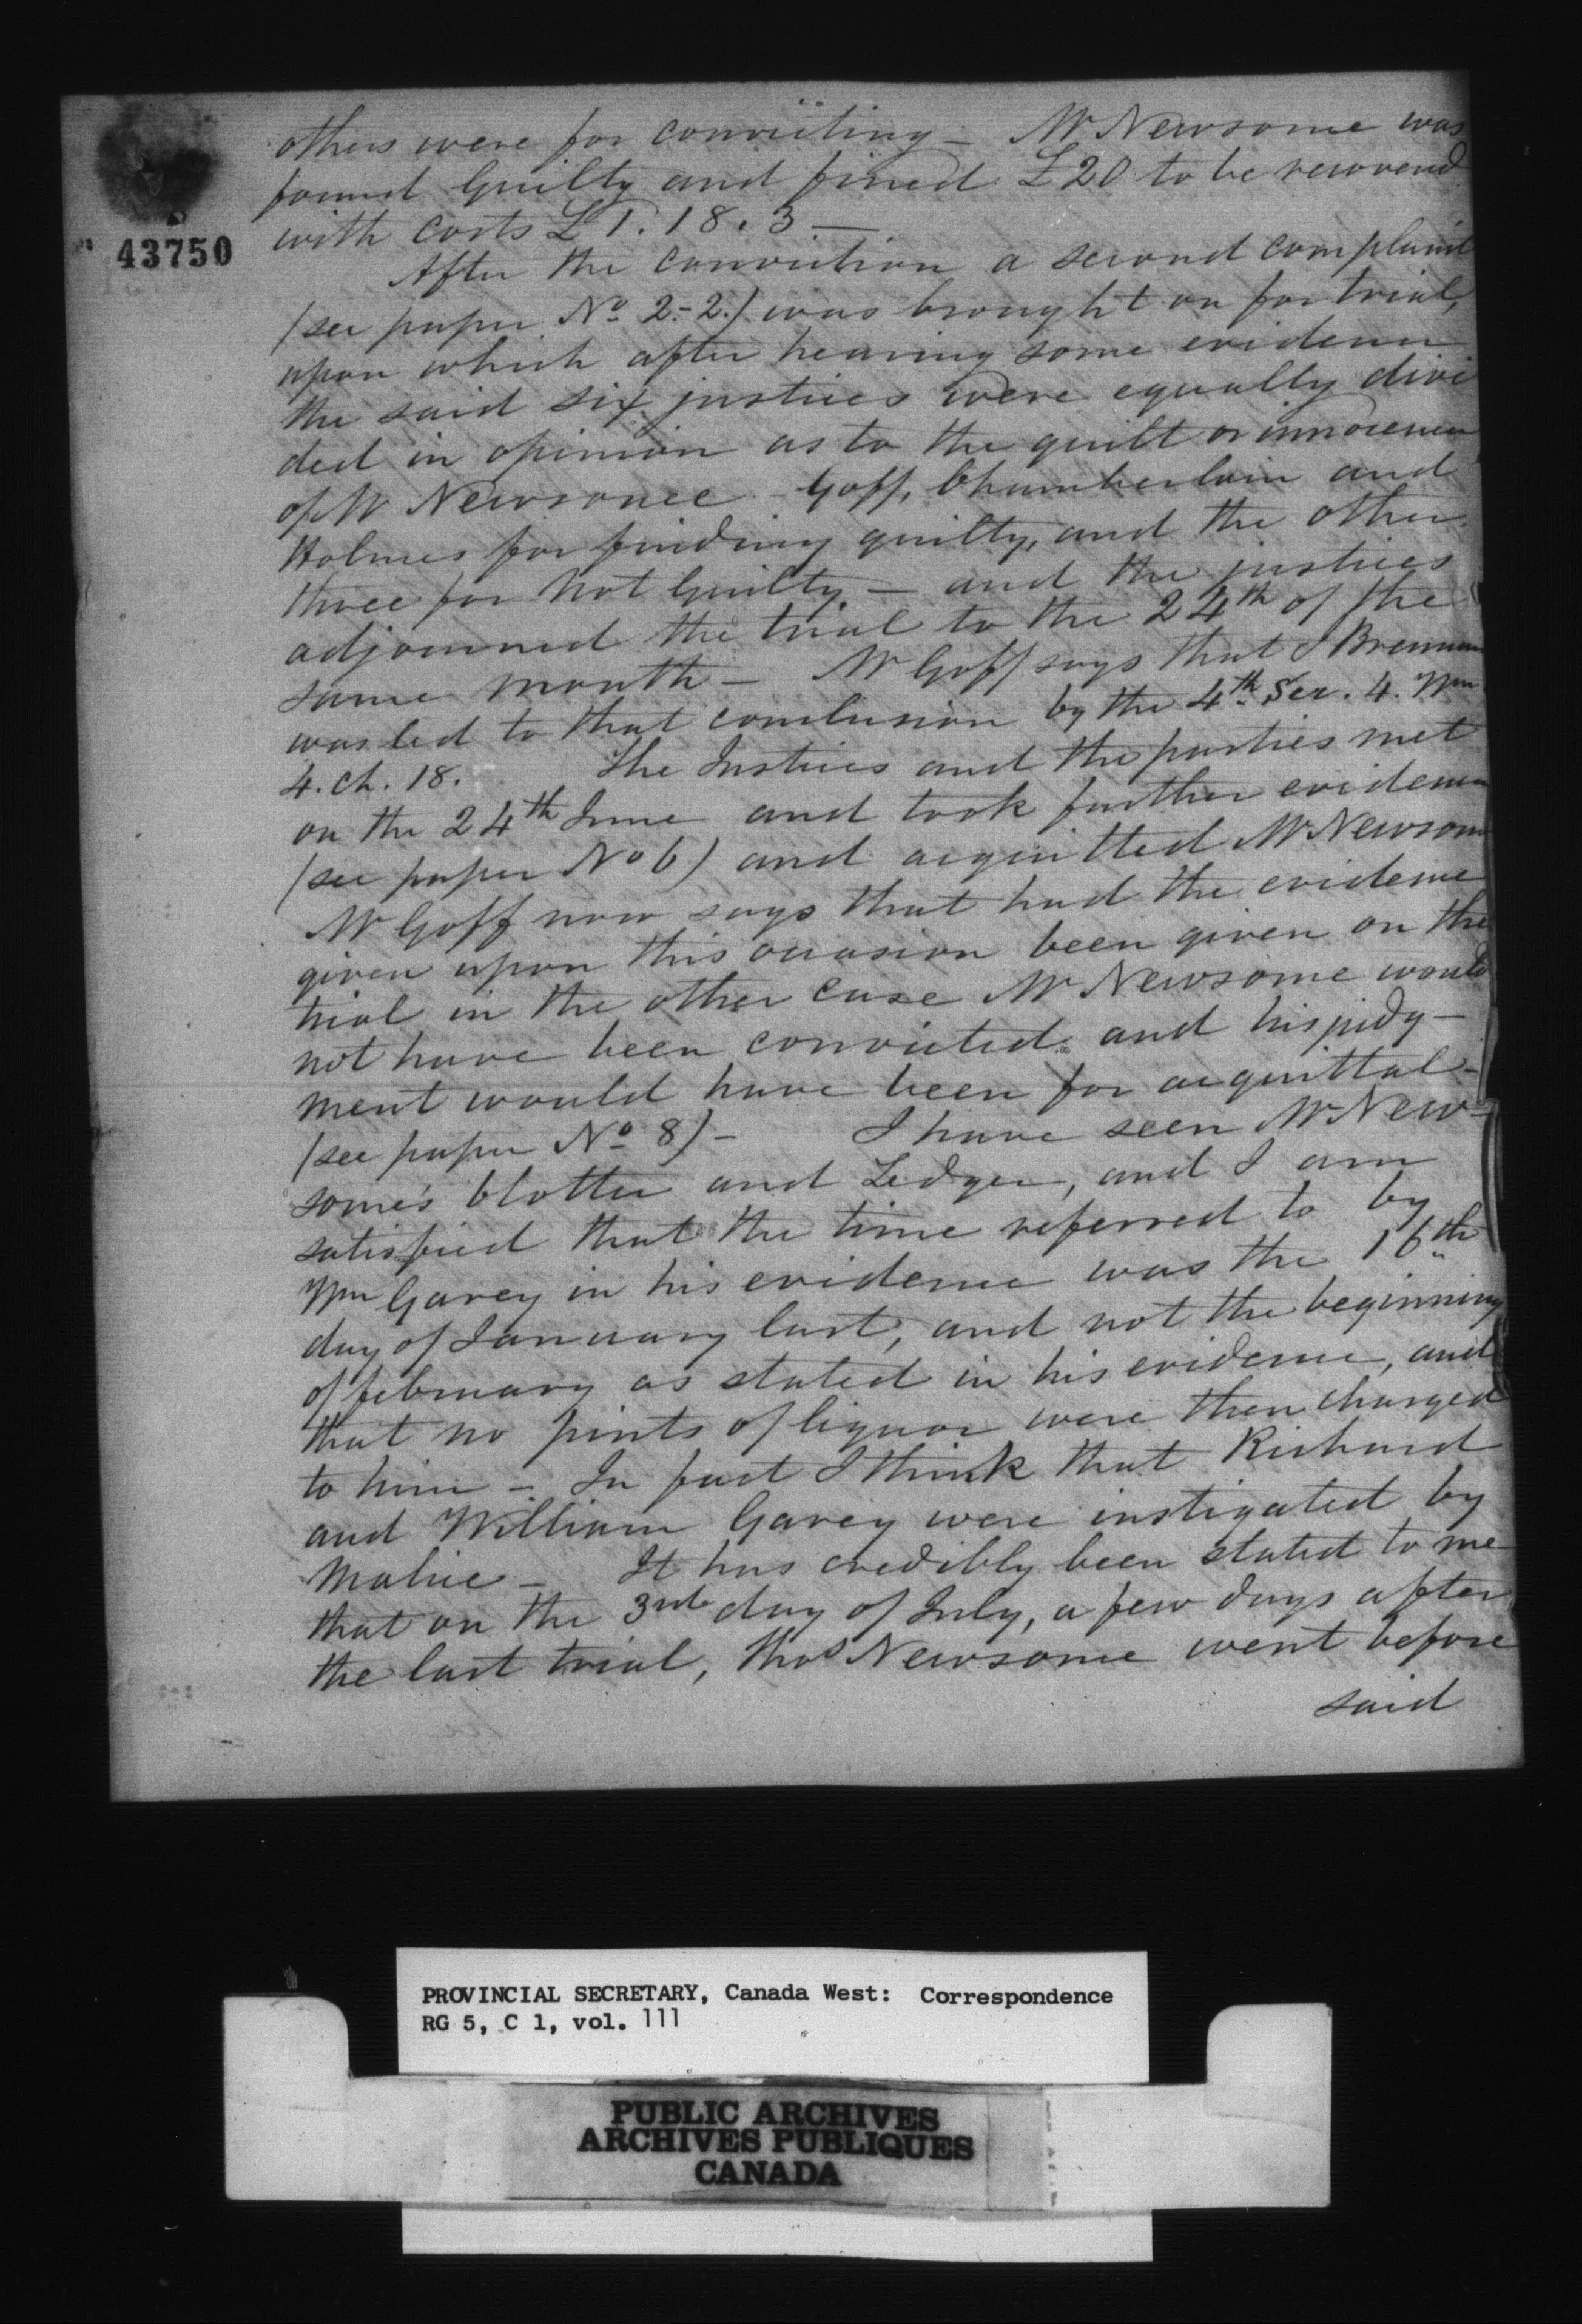 others were for convicting - Mr Newsome was
found Guilty and fined £20 to be recovered
with costs £1.18.3 —
43750
After the conviction a second complaint
(see paper No. 2.-2.) was brought on for trial,
upon which after hearing some evidence
the said six justices were equally divi
ded in opinion as to the guilt or innocence
of Mr Newsome - Goff, Chamberlain and
Holmes for finding guilty, and the other
three for not Guilty. - and the justices
adjourned the trial to the 24th of the
same month - Mr Goff says that J Brennan
was led to that conclusion by the 4th Sec. 4. Wm
4. ch. 18. The Justices and the parties met
on the 24th June and took further evidence
(see paper No 6) and acquitted Mr Newsome
Mr Goff now says that had the evidence
given upon this occasion been given on the
trial in the other case Mr Newsome would
not have been convicted and his judg-
ment would have been for acquittal -
(see paper No 8) - I have seen Mr New-
some's blotter and Ledger, and I am
satisfied that the time referred to by
Wm Garey in his evidence was the 16th
day of January last, and not the beginning
of february as stated in his evidence, and
that no pints of liquor were then charged
to him - In fact I think that Richard
and William Garey were instigated by
Malice - It has credibly been stated to me
that on the 3rd day of July, a few days after
the last trial, Thos Newsome went before
said
PROVINCIAL SECRETARY, Canada West: Correspondence
RG 5, C 1, vol. 111
PUBLIC ARCHIVES
ARCHIVES PUBLIQUES
CANADA